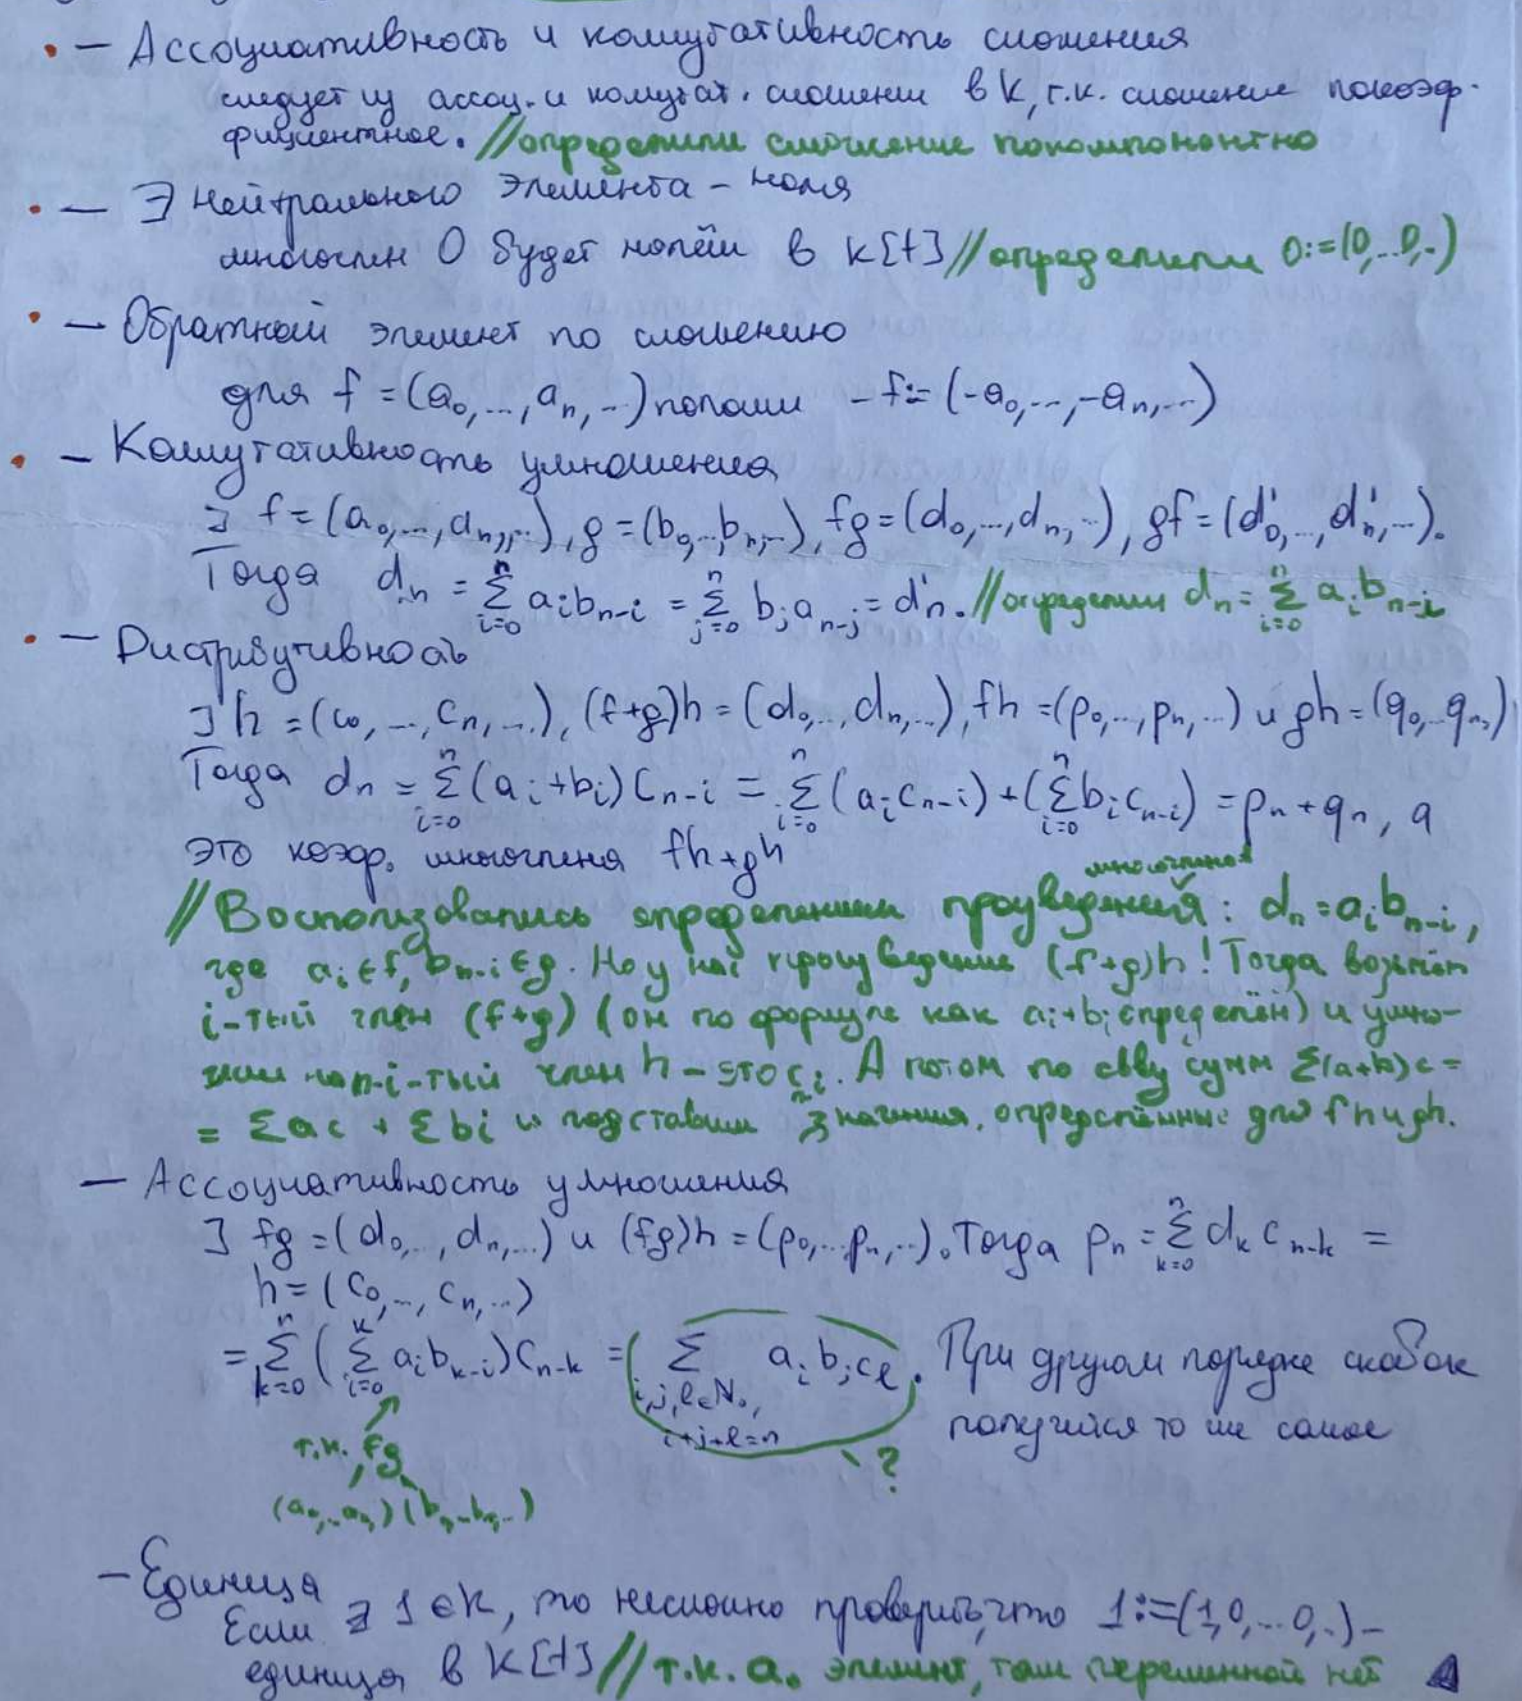 • — Ассоциативность и коммутативность сложения
следует из ассоц. и комутат. сложения в K, т.к. сложение покоэф-
фициентное. // определили сложение покомпонентно
• — ∃ Нейтрального элемента – ноля
многочлен 0 будет нолём в K[t] // определили 0:=(0,...0,..)
• — Обратный элемент по сложению
для f = (a₀,...,aₙ,...) положим -f:= (-a₀,...,-aₙ,...)
• — Коммутативность умножения
] f = (a₀,...,aₙ,...), g = (b₀,..,bₙ,...), fg = (d₀,...,dₙ,..), gf = (d'₀,...,d'ₙ,...).
Тогда dₙ = Σⁿᵢ₌₀ aᵢbₙ₋ᵢ = Σⁿⱼ₌₀ bⱼaₙ₋ⱼ = d'ₙ. // определили dₙ = Σⁿᵢ₌₀ aᵢbₙ₋ᵢ
• — Дистрибутивность
] h = (c₀,...,cₙ,...), (f+g)h = (d₀,...,dₙ,...), fh = (p₀,...,pₙ,...) и gh = (q₀,..qₙ,)
Тогда dₙ = Σⁿᵢ₌₀ (aᵢ+bᵢ)cₙ₋ᵢ = Σⁿᵢ₌₀ (aᵢcₙ₋ᵢ) + (Σⁿᵢ₌₀ bᵢcₙ₋ᵢ) = pₙ + qₙ, а
это коэф. многочлена fh+gh
многочленов
// Воспользовались определением произведения: dₙ = aᵢbₙ₋ᵢ,
где aᵢ∈f, bₙ₋ᵢ∈g. Но у нас произведение (f+g)h! Тогда возьмём
i-тый член (f+g) (он по формуле как aᵢ+bᵢ определён) и умно-
жим на n-i-тый член h – это cₙ₋ᵢ. А потом по св-ву сумм Σ(a+b)c =
= Σac + Σbi и подставим значения, определённые для fh и gh.
— Ассоциативность умножения
] fg = (d₀,..., dₙ,...) и (fg)h = (p₀,...pₙ,..). Тогда pₙ = Σⁿₖ₌₀ dₖcₙ₋ₖ =
h = (c₀,..., cₙ,...)
= Σⁿₖ₌₀ (Σᵏᵢ₌₀ aᵢbₖ₋ᵢ)cₙ₋ₖ = Σ aᵢbⱼcₗ. При другом порядке скобок
i,j,l∈N₀,
i+j+l=n
получился то же самое
?
т.к. fg
(a₀,..aₙ,)(b₀,..bₙ,..)
— Единица
Если ∃ 1∈K, то несложно проверить, что 1:=(1,0,...0,..) –
единица в K[t] // т.к. a₀ элемент, там переменной нет